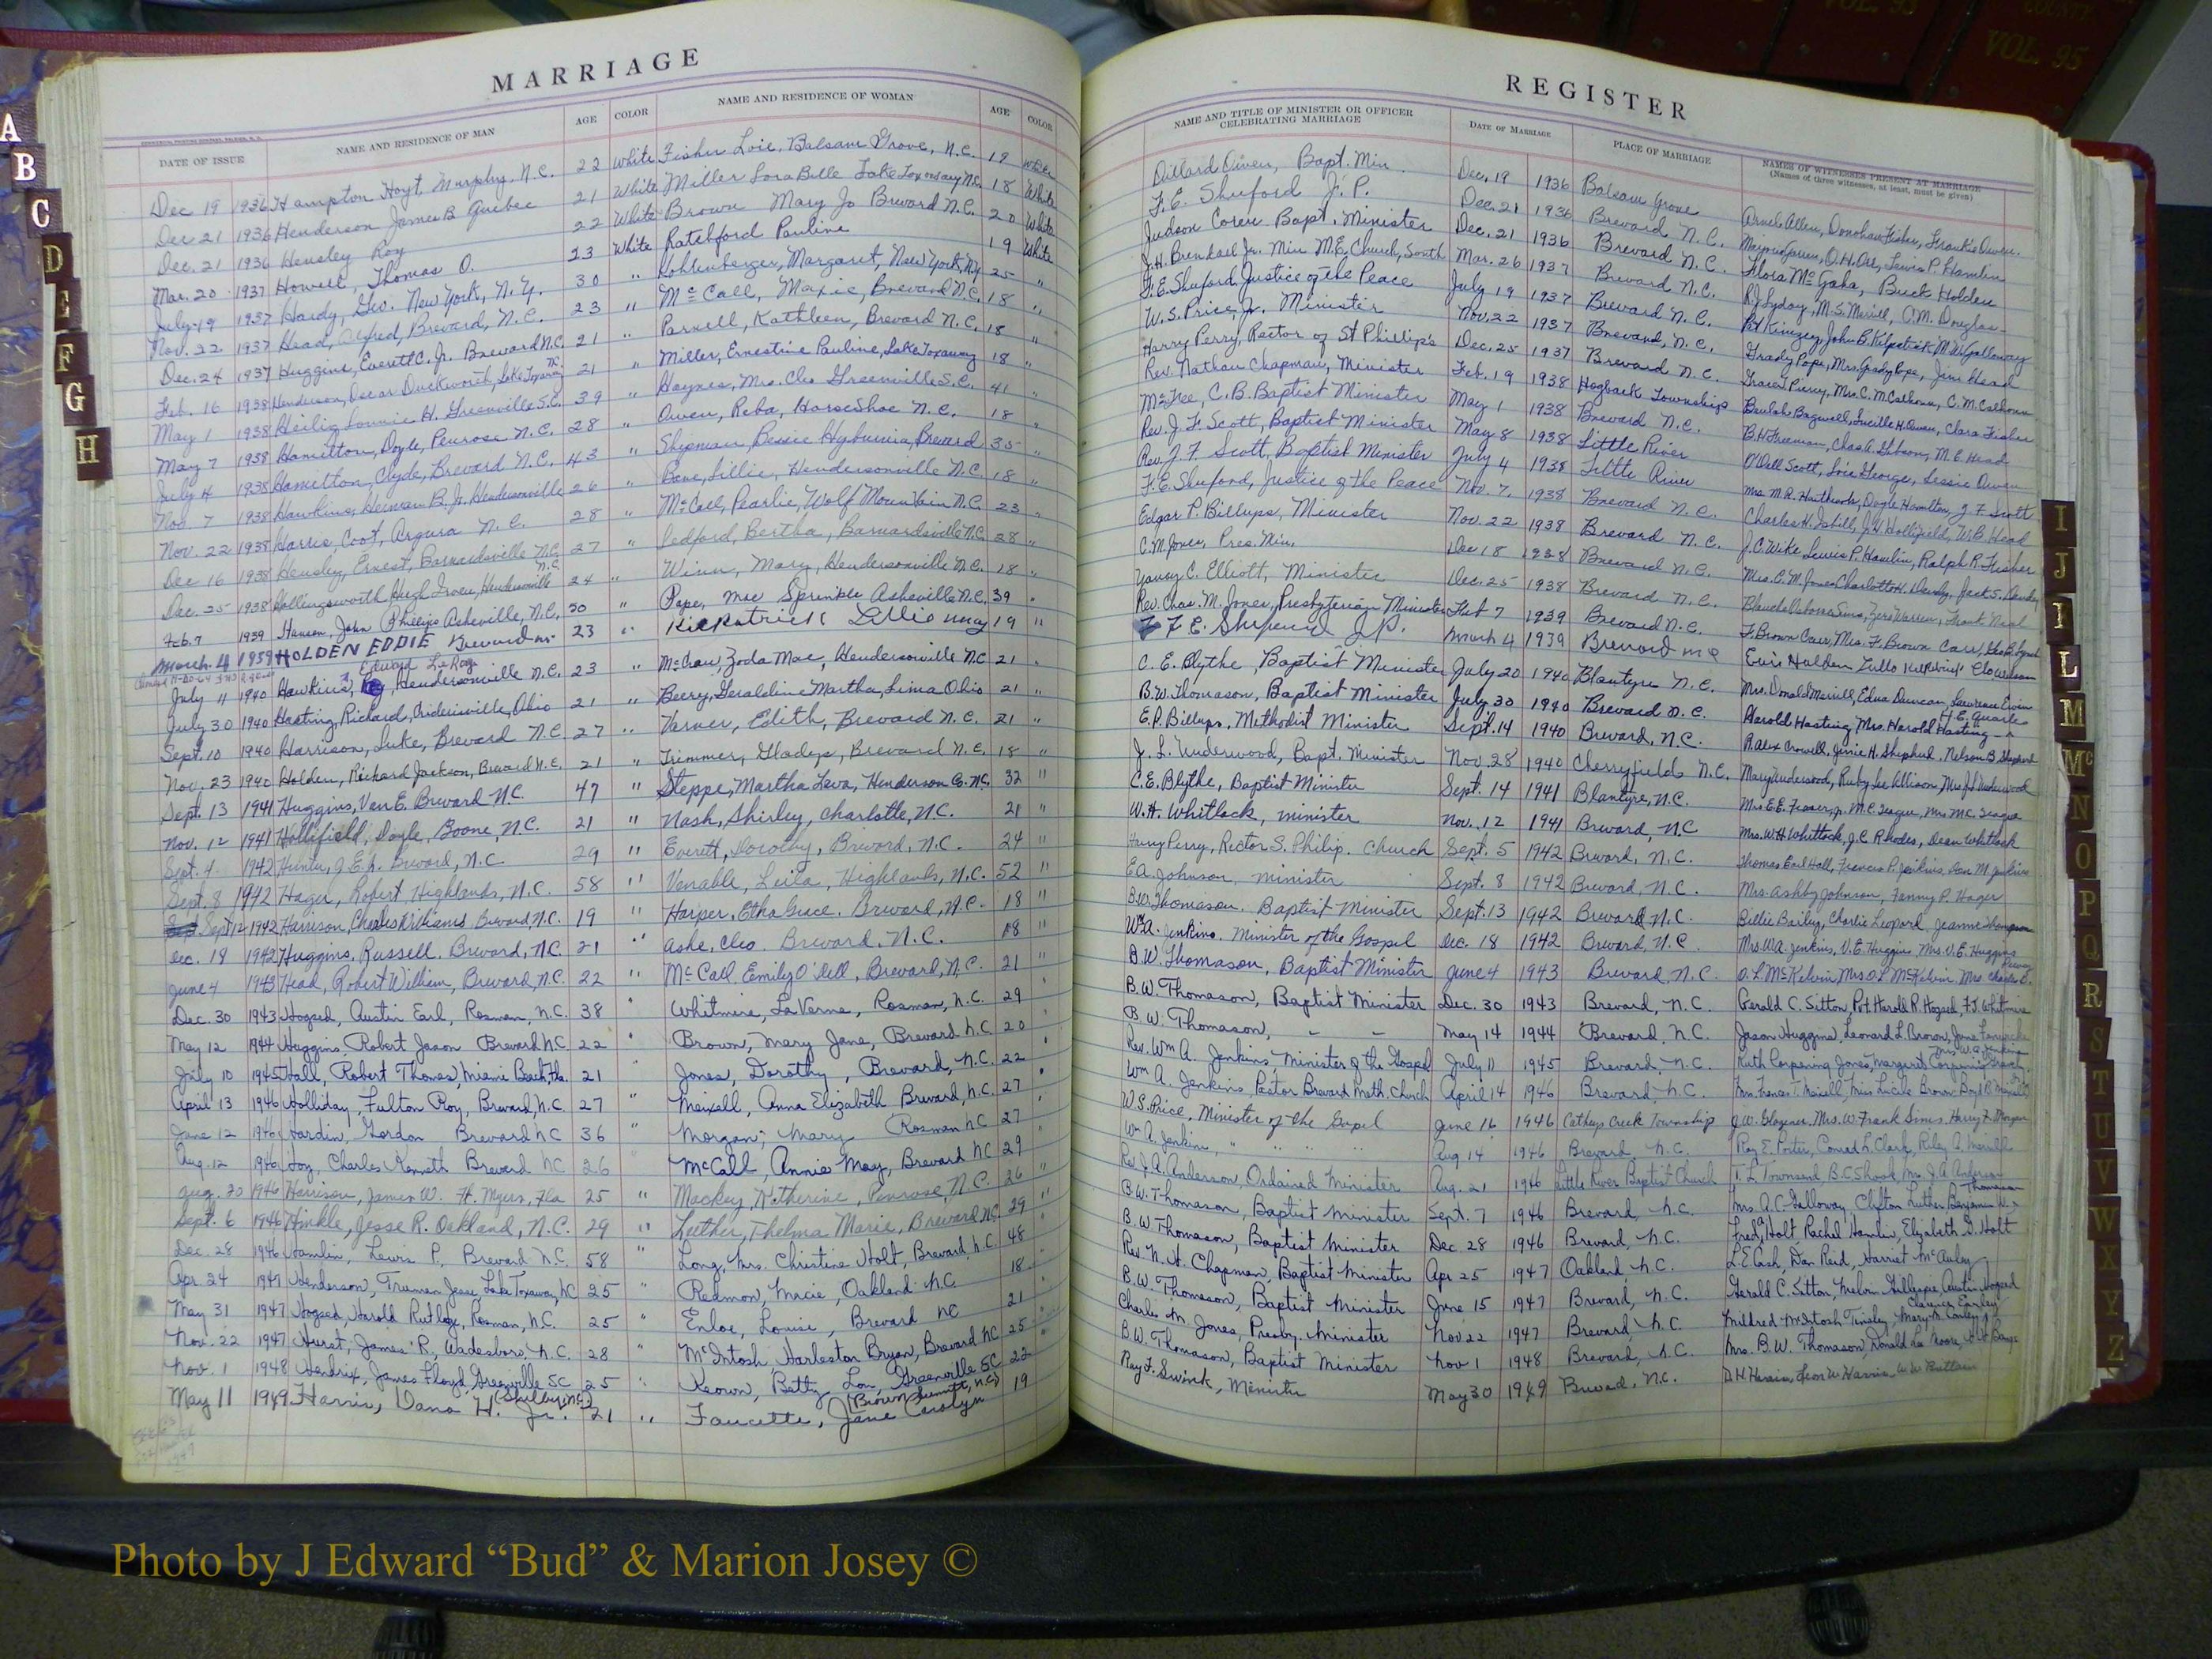 VOL. 95
COUNTY
VOL. 95
MARRIAGE
DATE OF ISSUE NAME AND RESIDENCE OF MAN AGE COLOR NAME AND RESIDENCE OF WOMAN AGE COLOR
Dec 19 1936 Hampton Hoyt, Murphy, N.C. 22 White Fisher Loie, Balsam Grove, N.C. 19 White
Dec 21 1936 Henderson James B Quebec 21 White Miller Lora Belle Lake Toxaway N.C. 18 White
Dec. 21 1936 Hensley Roy 22 White Brown Mary Jo Brevard N.C. 20 White
Mar. 20 1937 Howell, Thomas O. 23 White Ratchford Pauline 19 White
July 19 1937 Hardy, Geo. New York, N.Y. 30 " Kohlenberger, Margaret, New York, N.Y. 25 "
Nov. 22 1937 Head, Alfred, Brevard, N.C. 23 " McCall, Maxie, Brevard N.C. 18 "
Dec. 24 1937 Huggins, Everett C. Jr. Brevard N.C. 21 " Parnell, Kathleen, Brevard N.C. 18 "
Feb. 16 1938 Henderson, Oscar Duckworth, Lake Toxaway N.C. 21 " Miller, Ernestine Pauline, Lake Toxaway 18 "
May 1 1938 Heilig, Lonnie H. Greenville S.C. 39 " Haynes, Mrs. Cleo Greenville S.C. 41 "
May 7 1938 Hamilton, Doyle, Penrose N.C. 28 " Owen, Reba, Horse Shoe N.C. 18 "
July 4 1938 Hamilton, Clyde, Brevard N.C. 43 " Shipman, Bessie Brevard 35 "
Nov. 7 1938 Hawkins, Herman B. Jr. Hendersonville 26 " Lillie, Hendersonville N.C. 18 "
Nov. 22 1938 Harris, Coot, Argura N.C. 28 " McCall, Pearlie, Wolf Mountain N.C. 23 "
Dec 16 1938 Hensley, Ernest, Barnardsville N.C. 27 " Ledford, Bertha, Barnardsville N.C. 28 "
Dec. 25 1938 Hollingsworth Hugh Hendersonville N.C. 24 " Winn, Mary, Hendersonville N.C. 18 "
Feb. 7 1939 John Phillips Asheville, N.C. 30 " Pope, Mae Sprinkle Asheville N.C. 39 "
March 4 1939 HOLDEN EDDIE Brevard nc 23 " Kilpatrick Lillie May 19 "
July 11 1940 Hawkins, Edward LeRoy Hendersonville N.C. 23 " McCraw, Zoda Mae, Hendersonville N.C. 21 "
July 30 1940 Hasting, Richard, Ohio 21 " Beery, Geraldine Martha, Lima Ohio 21 "
Sept. 10 1940 Harrison, Luke, Brevard N.C. 27 " Varner, Edith, Brevard N.C. 21 "
Nov. 23 1940 Holden, Richard Jackson, Brevard N.C. 21 " Trimmer, Gladys, Brevard N.C. 18 "
Sept. 13 1941 Huggins, Van E. Brevard N.C. 47 " Steppe, Martha Leva, Henderson Co. N.C. 32 "
Nov. 12 1941 Hollifield, Doyle, Boone, N.C. 21 " Nash, Shirley, Charlotte, N.C. 21 "
Sept. 4 1942 Hunter, Brevard, N.C. 29 " Everett, Dorothy, Brevard, N.C. 24 "
Sept. 8 1942 Hager, Robert Highlands, N.C. 58 " Venable, Leila, Highlands, N.C. 52 "
Sept 12 1942 Harrison, Charles Williams Brevard, N.C. 19 " Harper, Etha Grace. Brevard, N.C. 18 "
Dec. 18 1942 Huggins, Russell. Brevard, N.C. 21 " Ashe, Cleo. Brevard. N.C. 18 "
June 4 1943 Head, Robert William, Brevard, N.C. 22 " McCall Emily O'Dell, Brevard, N.C. 21 "
Dec. 30 1943 Hogsed, Austin Earl, Rosman, N.C. 38 " Whitmire, LaVerne, Rosman, N.C. 29 "
May 12 1944 Huggins, Robert Jason Brevard N.C. 22 " Brown, Mary Jane, Brevard N.C. 20 "
July 10 1945 Hall, Robert Thomas, Miami Beach, Fla. 21 " Jones, Dorothy, Brevard, N.C. 22 "
April 13 1946 Holliday, Fulton Roy, Brevard, N.C. 27 " Meixell, Anna Elizabeth Brevard, N.C. 27 "
June 12 1946 Hardin, Gordon Brevard NC 36 " Morgan, Mary Rosman NC 27 "
Aug. 12 1946 Charles Kenneth Brevard NC 26 " McCall, Annie May, Brevard NC 29 "
Aug. 20 1946 Harrison, James W. Ft. Myers, Fla 25 " Mackey, Katherine, Penrose, N.C. 26 "
Sept. 6 1946 Hinkle, Jesse R. Oakland, N.C. 29 " Luther, Thelma Marie, Brevard NC 29 "
Dec. 28 1946 Hamlin, Lewis P., Brevard N.C. 58 " Long, Mrs. Christine Holt, Brevard, N.C. 48 "
Apr. 24 1947 Henderson, Truman Jesse Lake Toxaway, NC 25 " Redmon, Macie, Oakland N.C. 18 "
May 31 1947 Hogsed, Harold Rutledge, Rosman, N.C. 25 " Enloe, Louise, Brevard NC 21 "
Nov. 22 1947 Hurst, James R., Wadesboro, N.C. 28 " McIntosh Harleston Bryan, Brevard NC 25 "
Nov. 1 1948 Hendrix, James Floyd, Greenville SC 25 " Keown, Betty Lou, Greenville SC 22 "
May 11 1949 Harris, Dana H. Jr. (Shelby, NC) 21 " Faucette, Jane Carolyn (Brown Summit, N.C.) 19
REGISTER
NAME AND TITLE OF MINISTER OR OFFICER CELEBRATING MARRIAGE DATE OF MARRIAGE PLACE OF MARRIAGE NAMES OF WITNESSES PRESENT AT MARRIAGE
(Names of three witnesses, at least, must be given)
Dillard Owen, Bapt. Min. Dec. 19 1936 Balsam Grove Allen, Donohue Fisher, Frankie Owen.
F. E. Shuford J. P. Dec. 21 1936 Brevard N.C. O. H. Orr, Lewis P. Hamlin
Judson Coren Bapt. Minister Dec. 21 1936 Brevard N.C. Flora McGaha, Buck Holden
J. H. Brendall Jr. Min M.E. Church, South Mar. 26 1937 Brevard N.C. R. J. Lyday, M. S. Merrill, O. M. Douglas
F. E. Shuford, Justice of the Peace July 19 1937 Brevard N.C. Pat Kimzey, John B. Kilpatrick, M. W. Galloway
W. S. Price, Jr. Minister Nov. 22 1937 Brevard, N.C. Grady Pope, Mrs. Grady Pope, Jim Head
Harry Perry, Rector of St Phillip's Dec. 25 1937 Brevard N.C. Piercy, Mrs. C. M. Calhoun, C. M. Calhoun
Rev. Nathan Chapman, Minister Feb. 19 1938 Hogback Township Beulah Bagwell, Lucille H. Owen, Clara Fisher
McFee, C. B. Baptist Minister May 1 1938 Brevard N.C. B. H. Freeman, Chas. A. Gibson, M. E. Head
Rev. J. F. Scott, Baptist Minister May 8 1938 Little River O'Dell Scott, Loie George, Lessie Owen
Rev. J. F. Scott, Baptist Minister July 4 1938 Little River Mrs. M. R. Doyle Hamilton, J. F. Scott
F. E. Shuford, Justice of the Peace Nov. 7. 1938 Brevard N.C. Charles H. J. H. Hollifield, W. B. Head
Edgar P. Billups, Minister Nov. 22 1938 Brevard N.C. J. C. Wike Lewis P. Hamlin, Ralph R. Fisher
C. M. Jones, Pres. Min. Dec 18 1938 Brevard N.C. Mrs. C. M. Jones Charlotte H. Jack S.
Yancy C. Elliott, Minister Dec. 25 1938 Brevard N.C. Blanche Osborne Sims, Warren, Frank Neal
Rev. Chas. M. Jones, Presbyterian Minister Feb 7 1939 Brevard N.C. F. Brown Carr, Mrs. F. Brown Carr, Geo. B. Lynch
F. E. Shuford J.P. March 4 1939 Brevard nc Holden Kilpatrick
C. E. Blythe, Baptist Minister July 20 1940 Blantyre N.C. Mrs. Donald Merrill, Edna Duncan, Lawrence Ewin
B. W. Thomason, Baptist Minister July 30 1940 Brevard N.C. Harold Hasting, Mrs. Harold Hasting H. E. Quarles
E. P. Billups, Methodist Minister Sept. 14 1940 Brevard, N.C. R. Alex Crowell. Jinnie H. Shepherd. Nelson B. Shepherd
J. L. Underwood, Bapt. Minister Nov. 28 1940 Cherryfield N.C. Mary Underwood, Ruby Lee Allison, Mrs. J. L. Underwood
C. E. Blythe, Baptist Minister Sept. 14 1941 Blantyre, N.C. Mrs. E. E. Fraser, Jr. M. C. Teague, Mrs. M. C. Teague
W. H. Whitlock, minister Nov. 12 1941 Brevard, N.C. Mrs. W. H. Whitlock, J. C. Rhodes, Dean Whitlock
Harry Perry, Rector S. Philip. Church Sept. 5 1942 Brevard, N.C. Thomas Earl Hall, Francis P. Jenkins, M. Jenkins
E. A. Johnson, minister Sept. 8 1942 Brevard, N.C. Mrs. Ashby Johnson, Fanny P. Hager
B. W. Thomason. Baptist Minister Sept. 13 1942 Brevard N.C. Billie Bailey, Charlie Leopard, Jeanne Thompson
Wm A. Jenkins. Minister of the Gospel Dec. 18 1942 Brevard, N.C. Mrs. W. A. Jenkins, V. E. Huggins, Mrs. V. E. Huggins
B. W. Thomason, Baptist Minister June 4 1943 Brevard N.C. O. L. McKelvin, Mrs. O. L. McKelvin, Mrs. Charles E.
B. W. Thomason, Baptist Minister Dec. 30 1943 Brevard, N.C. Gerald C. Sitton, Pvt. Harold R. Hogsed, F. J. Whitmire
B. W. Thomason, " " May 14 1944 Brevard, N.C. Jason Huggins, Leonard L. Brown, June
Rev. Wm A. Jenkins, Minister of the Gospel July 11 1945 Brevard, N.C. Ruth Corpening Jones, Margaret Corpening Mrs. W. A. Jenkins
Wm A. Jenkins, Pastor Brevard Meth. Church April 14 1946 Brevard, N.C. Mrs. Frances T. Meixell, Miss Lucile Brown, Boyd B. Meixell
W. S. Price, Minister of the Gospel June 16 1946 Catheys Creek Township J. W. Glazener, Mrs. W. Frank Sims, Harry F. Morgan
Wm A. Jenkins, " " " Aug 14 1946 Brevard, N.C. Roy E. Porter, Conrad L. Clark, Riley A. Merrill
Rev. J. A. Anderson, Ordained Minister Aug. 21 1946 Little River Baptist Church T. L. Townsend B. C. Shook, Mrs. J. A. Anderson
B. W. Thomason, Baptist Minister Sept. 7 1946 Brevard, N.C. Mrs. A. C. Galloway Clifton Luther, Benjamin W. Thomason
B. W. Thomason, Baptist Minister Dec 28 1946 Brevard, N.C. Fred Holt, Rachel Hamlin, Elizabeth G. Holt
Rev. N. H. Chapman, Baptist Minister Apr 25 1947 Oakland, N.C. L. E. Cash, Dan Reid, Harriet McAuley
B. W. Thomason, Baptist Minister June 15 1947 Brevard, N.C. Gerald C. Sitton, Melvin Gillespie, Austin Hogsed
Charles M. Jones, Presby. Minister Nov 22 1947 Brevard, N.C. Mildred McIntosh Tinsley, Mary M. Earley, Clarence Earley
B. W. Thomason, Baptist Minister Nov 1 1948 Brevard, N.C. Mrs. B. W. Thomason, Donald Lee Moore,
Ray F. Swink, Minister May 30 1949 Brevard, N.C. D H Harris Leon W. Harris W. W.
A
B
C
D
E
F
G
H
I
J
L
M
Mc
N
O
P
Q
R
S
T
U
V
W
X
Y
Z
Photo by J Edward “Bud” & Marion Josey ©